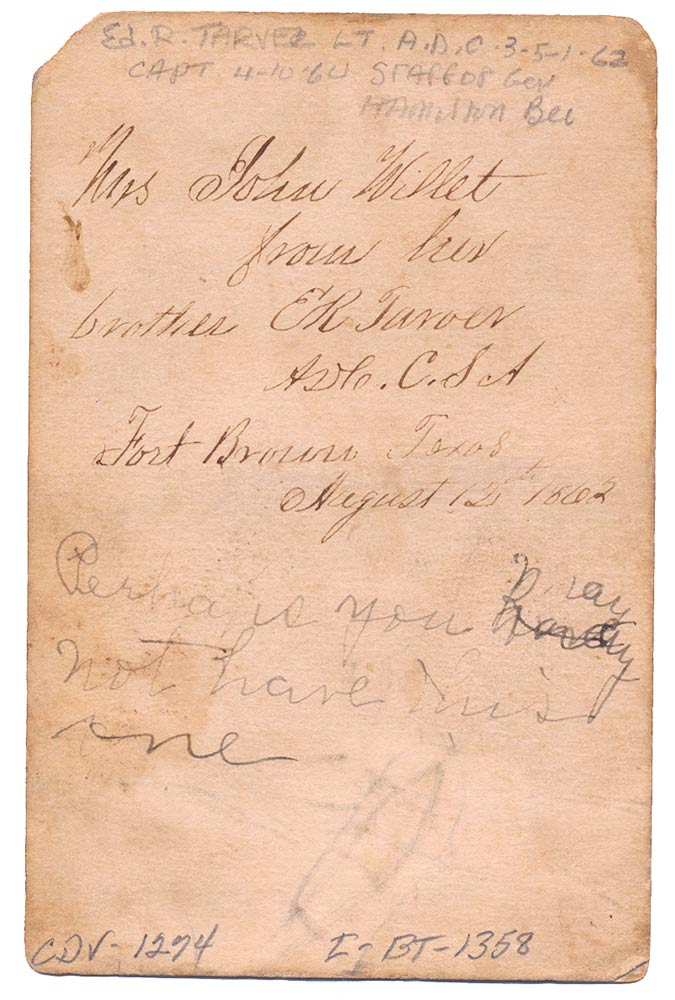 Ed. R. TARVER LT. A.D.C. 3-5-1-62
CAPT. 4-10-64 STAFF OF Gen
HAMILTON Bee
Mrs John Willet
from her
brother ER Tarver
ADC. C.S.A
Fort Brown Texas
August 12th 1862
Perhaps you may
not have this
one
CDV-1274 I-BT-1358